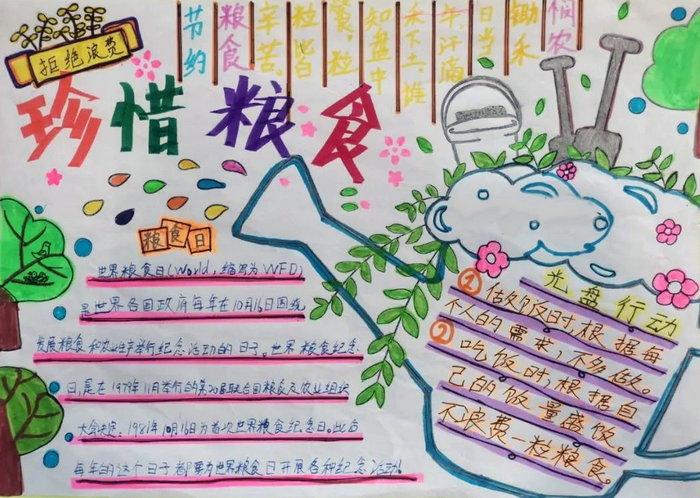 拒绝浪费
珍惜粮食
节约
粮食
辛苦
粒皆
知盘中
禾下土
日当
锄禾
悯农
粮食日
世界粮食日(World,缩写为WFD)
是世界各国政府每年在10月16日围绕
发展粮食和农业生产举行纪念活动的日子。世界粮食纪念
日,是在1979年11月举行的第20届联合国粮食及农业组织
大会决定:1981年10月16日为首次世界粮食纪念日。此后
每年的这个日子都要为世界粮食日开展各种纪念活动!
光盘行动
① 做饭时,根据每
个人的需来,不多做
② 吃饭时,根据自
己的饭量盛饭。
不浪费一粒粮食。